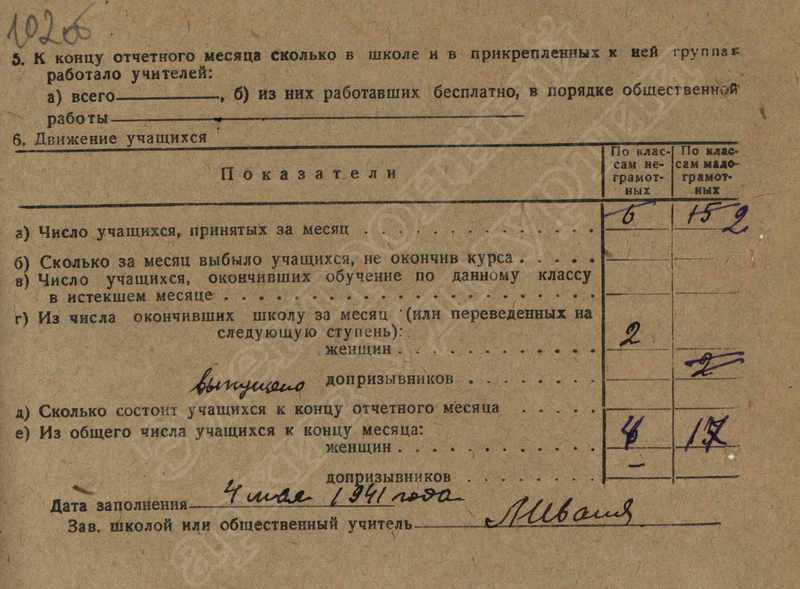 102б
5. К концу отчетного месяца сколько в школе и в прикрепленных к ней группах
работало учителей:
а) всего, б) из них работавших бесплатно, в порядке общественной
работы
6. Движение учащихся
Показатели
По клас-
сам не-
грамот-
ных
По клас-
сам мало-
грамот-
ных
а) Число учащихся, принятых за месяц . . . . . . . . . . . . . 15 2
б) Сколько за месяц выбыло учащихся, не окончив курса . . . . .
в) Число учащихся, окончивших обучение по данному классу
в истекшем месяце . . . . . . . . . . . . . . . . . . . . . .
г) Из числа окончивших школу за месяц (или переведенных на
следующую ступень):
женщин . . . . . . . . . . . . 2
выпущено допризывников . . . . . . . . 2
д) Сколько состоит учащихся к концу отчетного месяца . . . . .
е) Из общего числа учащихся к концу месяца:
женщин . . . . . . . . . . . . 4 17
допризывников . . . . . . . . —
Дата заполнения 4 мая 1941 года
Зав. школой или общественный учитель